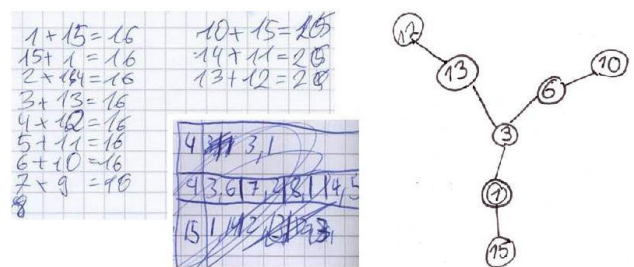 1+15=16
15+1=16
2+14=16
3+13=16
4+12=16
5+11=16
6+10=16
7+9=16
8
10+15=25
14+11=25
13+12=25
4 3,1
4 3,6 7,2 8,1 4,5
15 1,14 12,
12
13
6
10
3
1
15